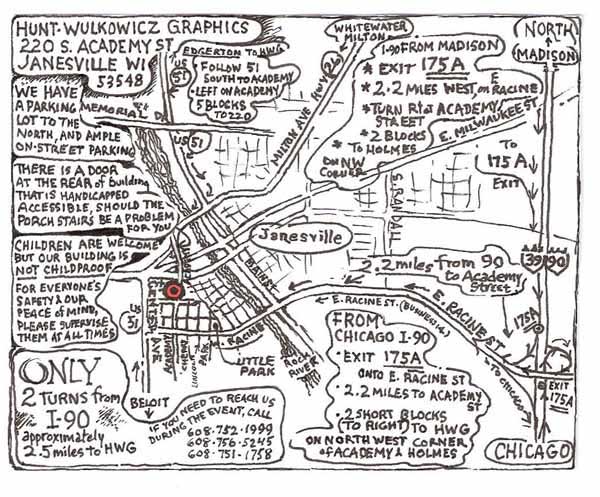 HUNT-WULKOWICZ GRAPHICS
220 S. ACADEMY ST
JANESVILLE WI
53548
WE HAVE
A PARKING
LOT TO THE
NORTH, AND AMPLE
ON-STREET PARKING
THERE IS A DOOR
AT THE REAR of building
THAT IS HANDICAPPED
ACCESSIBLE, SHOULD THE
PORCH STAIRS BE A PROBLEM
FOR YOU
CHILDREN ARE WELCOME
BUT OUR BUILDING IS
NOT CHILDPROOF
FOR EVERYONE'S
SAFETY & OUR
PEACE OF MIND,
PLEASE SUPERVISE
THEM AS ALL TIMES
ONLY
2 TURNS from
I-90
approximately
2.5 miles to HWG
EDGERTON TO HWG
FOLLOW 51
SOUTH TO ACADEMY
• LEFT ON ACADEMY
5 BLOCKS
TO 220
US
51
MEMORIAL DR
US 51
MILTON AVE HWY 26
WHITEWATER
MILTON
I-90 FROM MADISON
* EXIT 175A
* 2.2 MILES WEST ON E RACINE
* TURN Rt at ACADEMY
STREET
* 2 BLOCKS
* TO HOLMES
ON NW
CORNER
E. MILWAUKEE ST
NORTH
MADISON
TO
175A
EXIT
S. RANDALL
Janesville
39 90
2.2 miles from 90
to Academy
Street
175A
E. RACINE ST. (BUSINESS 14)
E. RACINE ST
TO CHICAGO
EXIT
175A
CHICAGO
US
51
CENTER AVE
ACADEMY
LINCOLN
PARK
W. RACINE
LITTLE
PARK
ROCK
RIVER
MAIN ST
BELOIT
IF YOU NEED TO REACH US
DURING THE EVENT, CALL
608-752-1999
608-756-5245
608-751-1758
FROM
CHICAGO I-90
• EXIT 175A
ONTO E. RACINE ST
• 2.2 MILES TO ACADEMY
ST
• 2 SHORT BLOCKS
(TO RIGHT) TO HWG
ON NORTH WEST CORNER
of ACADEMY & HOLMES